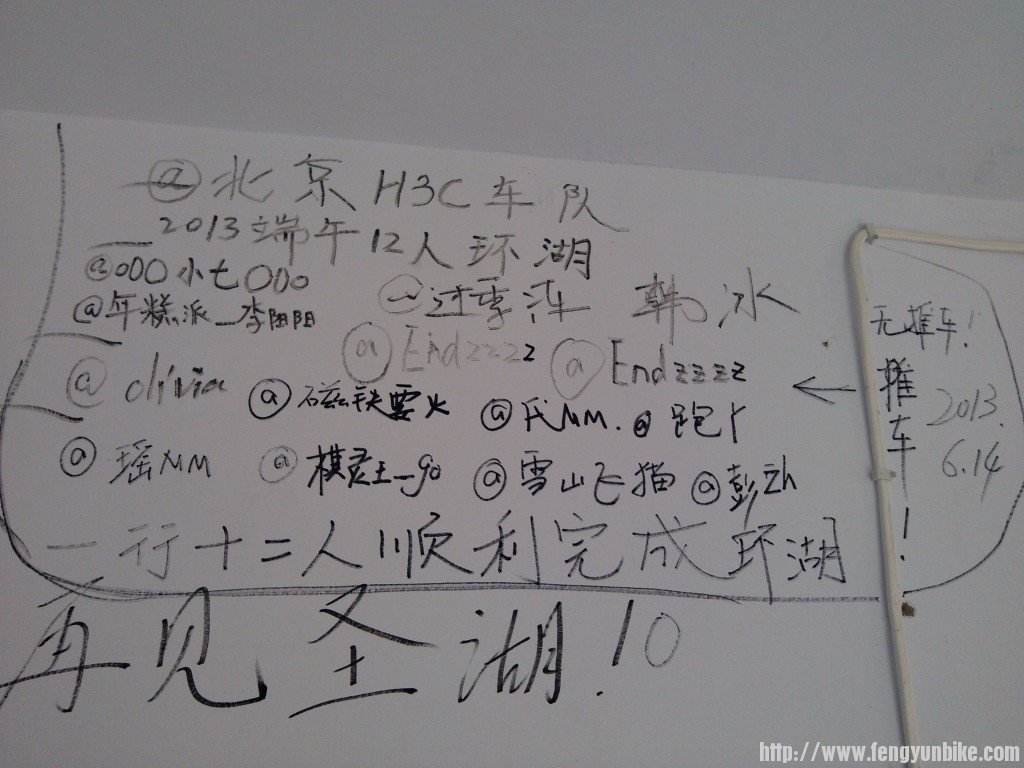 @北京H3C车队
2013端午12人环湖
@oDO小七ODo
@年糕派_李阳阳
韩冰
@Endzzzz @Endzzzz
@olivia @磁铁耍火 @氏MM. @跑丫
@瑶MM @棋君王_go @雪山飞猫 @彭zh
一行十二人顺利完成环湖
再见圣湖!
无推车!
推车!
2013.
6.14
http://www.fengyunbike.com